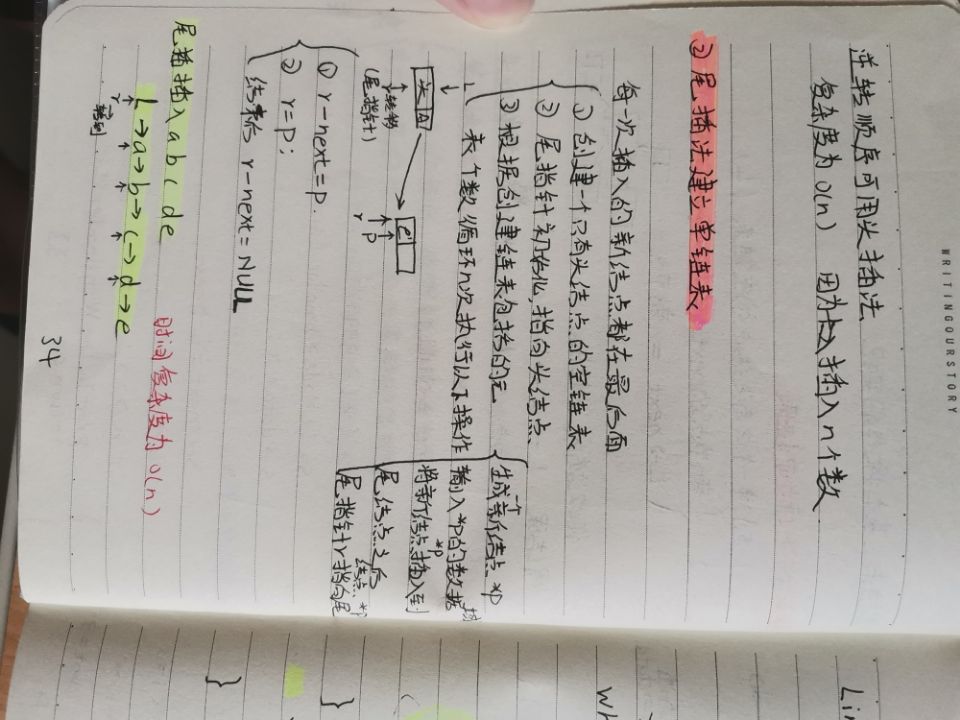 WRITINGOURSTORY
逆转顺序可用头插法
复杂度为 O(n) 因为插入n个数
② 尾插法建立单链表
每一次插入的新结点都在最后面
① 创建一个只有头结点的空链表
② 尾指针初始化,指向头结点
③ 根据创建链表包括的元
素个数循环n次执行以下操作
生成一个新结点 *p
输入*p的数据
将新结点*p插入到
尾结点之后
尾指针r指向尾结点*p
头
e
L
r
p
(尾指针)
① r-next=p.
② r=p;
结束后 r-next=NULL
尾插插入 a b c d e
时间复杂度为 O(n)
L→a→b→c→d→e
r
34
Li
wh
}
}